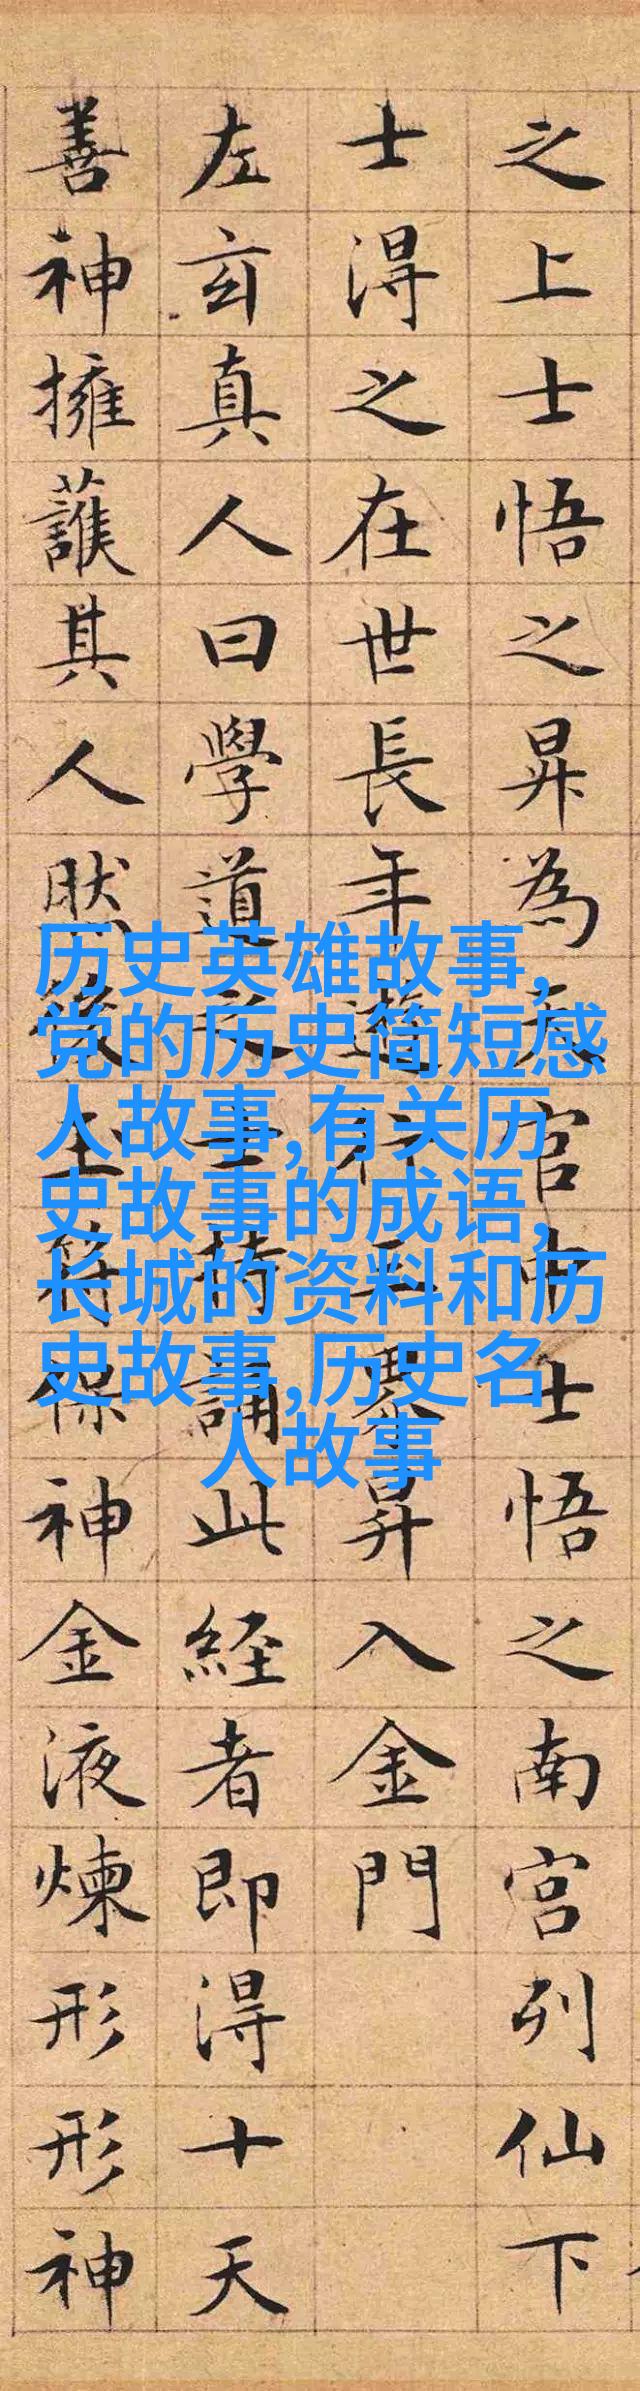 之上士悟之昇為天官中士悟之南宮列仙下
士得之在世長年遊行三界昇入金門
左玄真人曰學道之士持誦此経者即得十天
善神擁護其人然後玉符保神金液煉形形神
历史英雄故事,
党的历史简短感
人故事,有关历
史故事的成语,
长城的资料和历
史故事,历史名
人故事